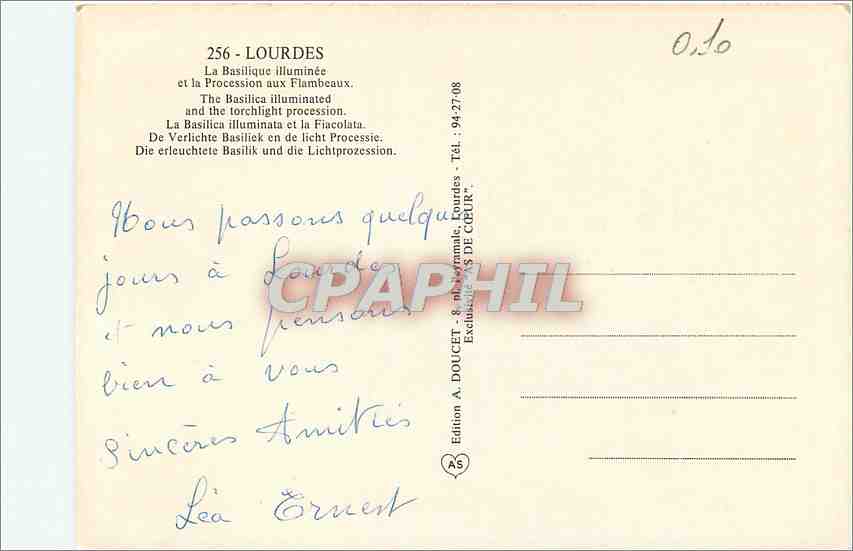 256 - LOURDES
La Basilique illuminée
et la Procession aux Flambeaux.
The Basilica illuminated
and the torchlight procession.
La Basilica illuminata et la Fiacolata.
De Verlichte Basiliek en de licht Processie.
Die erleuchtete Basilik und die Lichtprozession.
0,10
Nous passons quelques
jours à Lourdes
et nous pensons
bien à vous
Sincères Amitiés
Léa Ernest
Edition A. DOUCET - 8, pl. Peyramale, Lourdes - Tél. : 94-27-08
Exclusivité "AS DE CŒUR".
AS
CPAPHIL